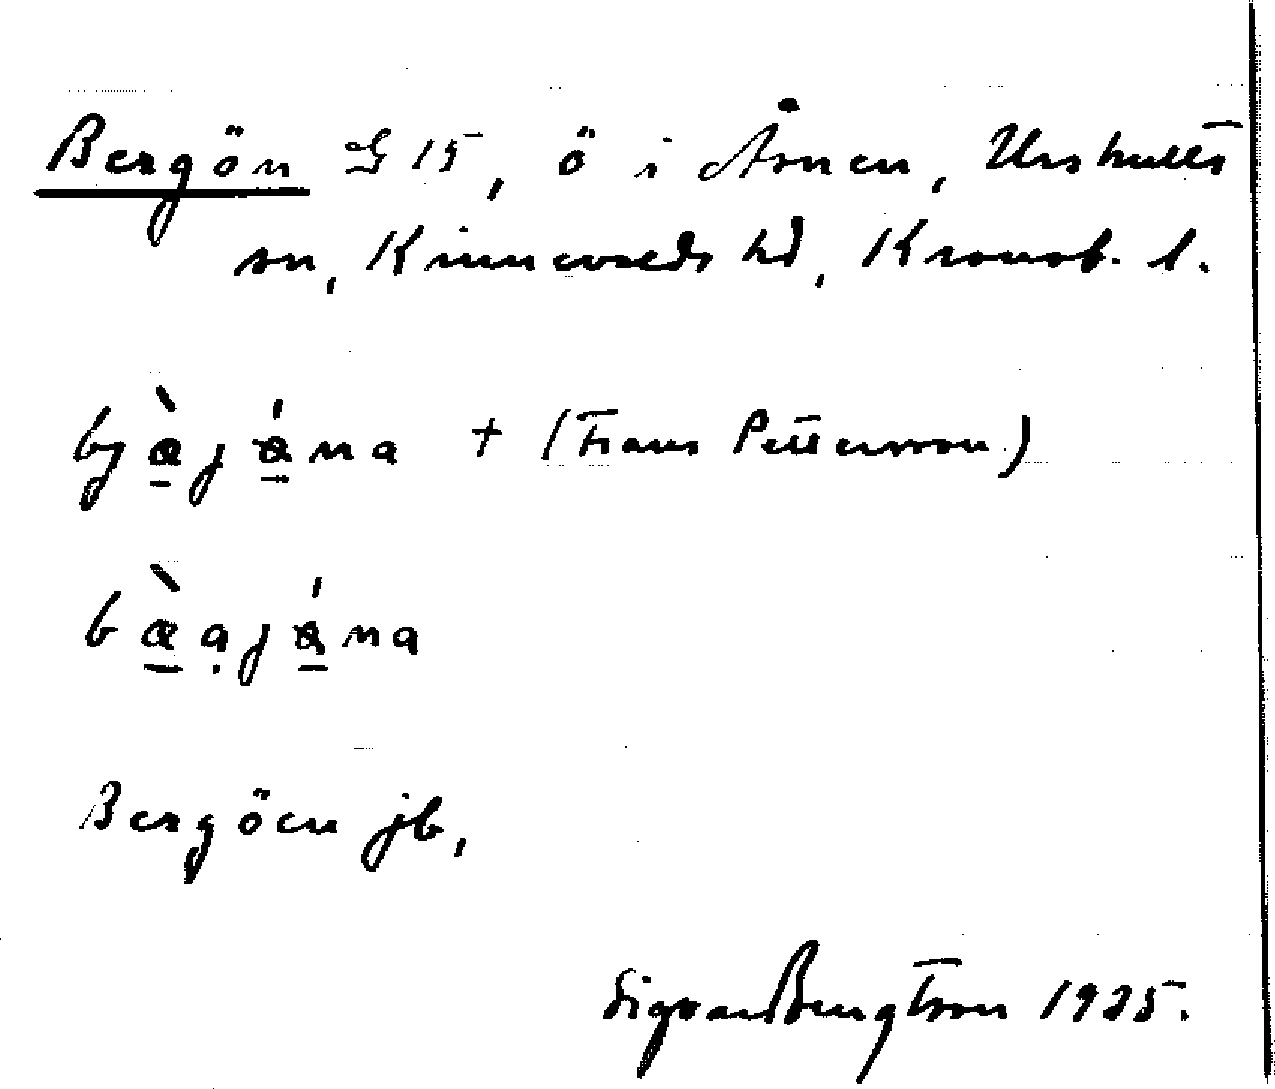 Bergön G 15, ö i Åsnen, Urshults
sn, Kinnevalds hd, Kronob. l.
+ (Frans Pettersson)
Bergöen jb,
Sigvard Bengtson 1935.